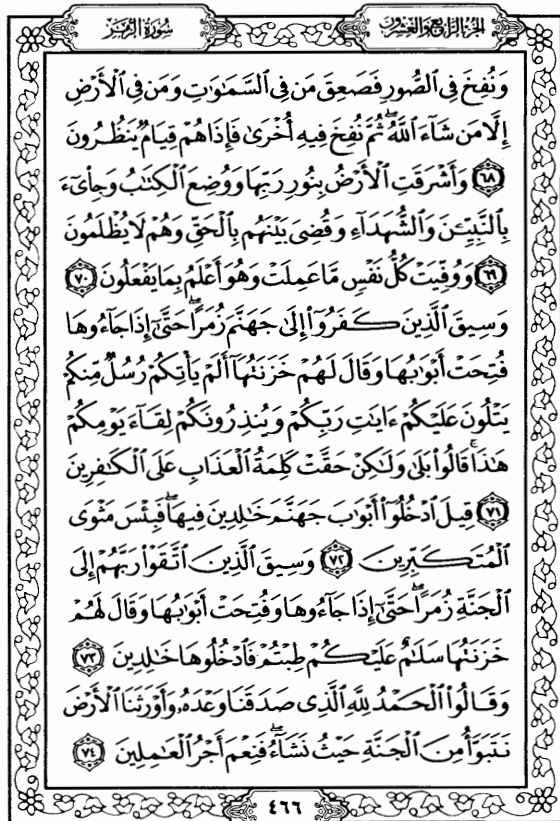 الجزء الرابع والعشرون
سُورَةُ الزُّمَرِ
وَنُفِخَ فِي الصُّورِ فَصَعِقَ مَن فِي السَّمَٰوَٰتِ وَمَن فِي الْأَرْضِ
إِلَّا مَن شَآءَ اللَّهُ ۖ ثُمَّ نُفِخَ فِيهِ أُخْرَىٰ فَإِذَا هُمْ قِيَامٌ يَنظُرُونَ
٦٨ وَأَشْرَقَتِ الْأَرْضُ بِنُورِ رَبِّهَا وَوُضِعَ الْكِتَٰبُ وَجِا۟ىٓءَ
بِالنَّبِيِّـۧنَ وَالشُّهَدَآءِ وَقُضِىَ بَيْنَهُم بِالْحَقِّ وَهُمْ لَا يُظْلَمُونَ
٦٩ وَوُفِّيَتْ كُلُّ نَفْسٍ مَّا عَمِلَتْ وَهُوَ أَعْلَمُ بِمَا يَفْعَلُونَ ٧٠
وَسِيقَ الَّذِينَ كَفَرُوٓا۟ إِلَىٰ جَهَنَّمَ زُمَرًا ۖ حَتَّىٰٓ إِذَا جَآءُوهَا
فُتِحَتْ أَبْوَٰبُهَا وَقَالَ لَهُمْ خَزَنَتُهَآ أَلَمْ يَأْتِكُمْ رُسُلٌ مِّنكُمْ
يَتْلُونَ عَلَيْكُمْ ءَايَٰتِ رَبِّكُمْ وَيُنذِرُونَكُمْ لِقَآءَ يَوْمِكُمْ
هَٰذَا ۚ قَالُوا۟ بَلَىٰ وَلَٰكِنْ حَقَّتْ كَلِمَةُ الْعَذَابِ عَلَى الْكَٰفِرِينَ
٧١ قِيلَ ادْخُلُوٓا۟ أَبْوَٰبَ جَهَنَّمَ خَٰلِدِينَ فِيهَا ۖ فَبِئْسَ مَثْوَى
الْمُتَكَبِّرِينَ ٧٢ وَسِيقَ الَّذِينَ اتَّقَوْا۟ رَبَّهُمْ إِلَى
الْجَنَّةِ زُمَرًا ۖ حَتَّىٰٓ إِذَا جَآءُوهَا وَفُتِحَتْ أَبْوَٰبُهَا وَقَالَ لَهُمْ
خَزَنَتُهَا سَلَٰمٌ عَلَيْكُمْ طِبْتُمْ فَادْخُلُوهَا خَٰلِدِينَ ٧٣
وَقَالُوا۟ الْحَمْدُ لِلَّهِ الَّذِى صَدَقَنَا وَعْدَهُۥ وَأَوْرَثَنَا الْأَرْضَ
نَتَبَوَّأُ مِنَ الْجَنَّةِ حَيْثُ نَشَآءُ ۖ فَنِعْمَ أَجْرُ الْعَٰمِلِينَ ٧٤
٤٦٦